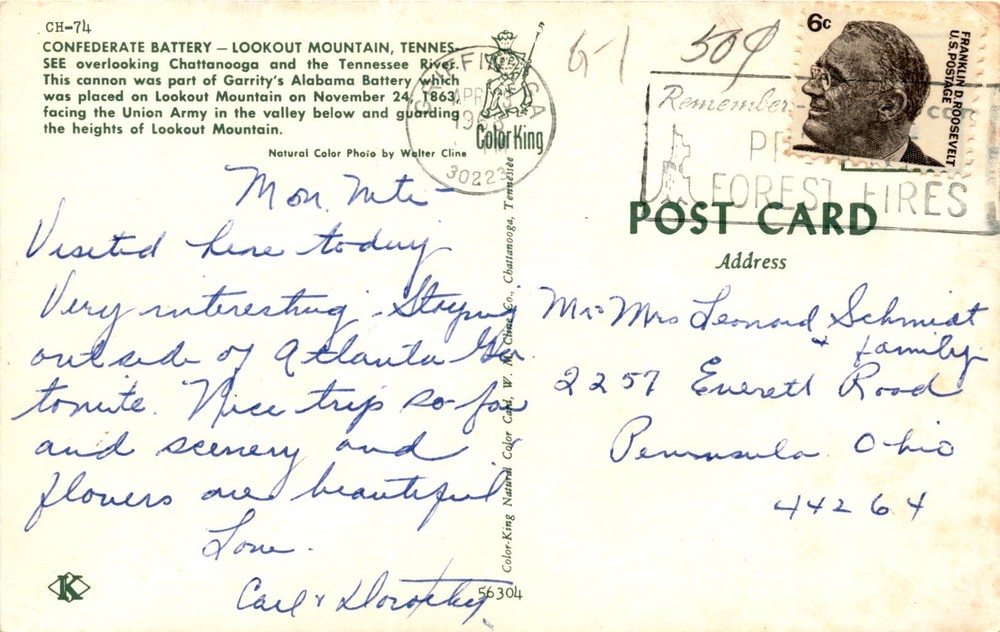 CH-74
CONFEDERATE BATTERY — LOOKOUT MOUNTAIN, TENNES-
SEE overlooking Chattanooga and the Tennessee River.
This cannon was part of Garrity's Alabama Battery which
was placed on Lookout Mountain on November 24, 1863,
facing the Union Army in the valley below and guarding
the heights of Lookout Mountain.
Natural Color Photo by Walter Cline
Color King
GRIFFIN, GA
APR
30223
G-1
50¢
6c
FRANKLIN D. ROOSEVELT
U.S. POSTAGE
Remember-
FOREST FIRES
POST CARD
Address
Mon. Nite -
Visited here today
Very interesting. Staying
outside of Atlanta Ga.
tonite. Nice trip so far
and scenery and
flowers are beautiful
Love.
Carl & Dorothy
Mr & Mrs Leonard Schmidt
& family
2257 Everett Road
Peninsula Ohio
44264
Color-King Natural Color Card, W. M. Cline Co., Chattanooga, Tennessee
K
56304